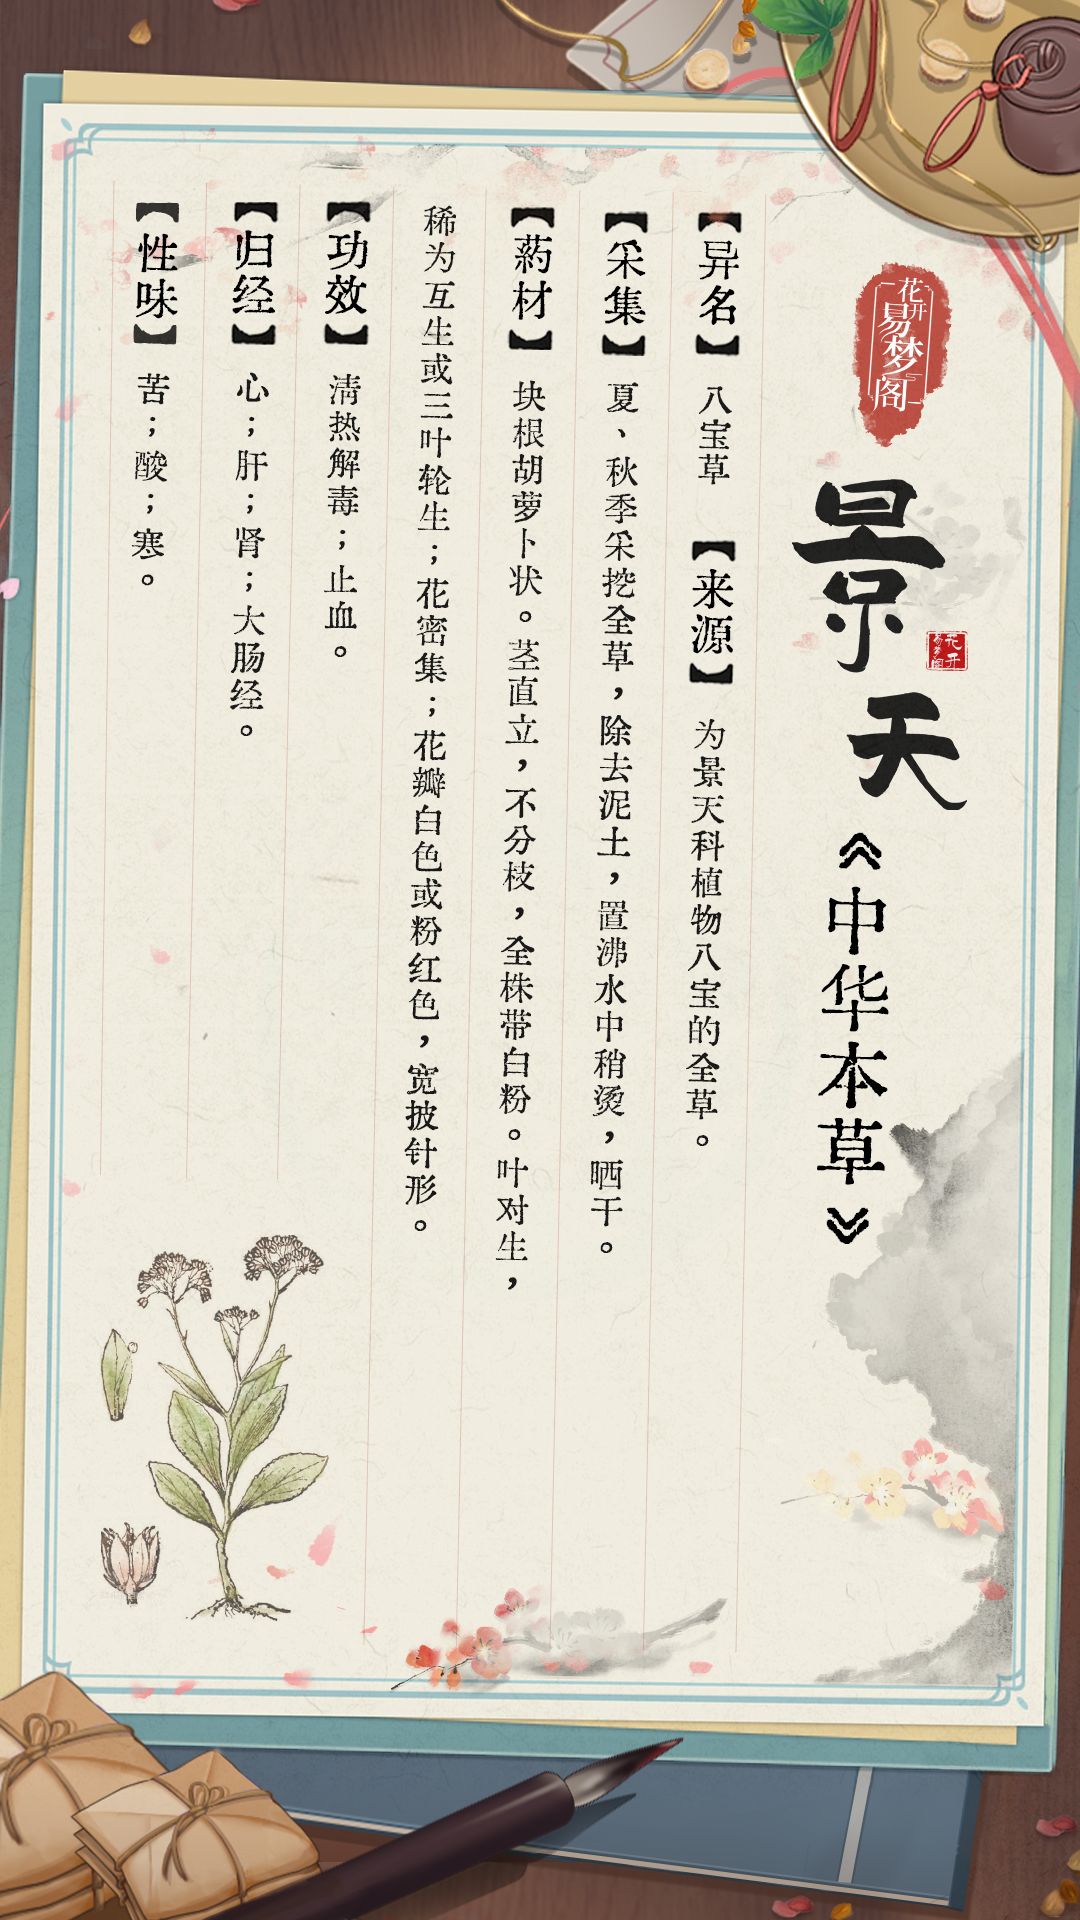 花开易梦阁
景天《中华本草》
花开易梦阁
【异名】八宝草 【来源】为景天科植物八宝的全草。
【采集】夏、秋季采挖全草，除去泥土，置沸水中稍烫，晒干。
【药材】块根胡萝卜状。茎直立，不分枝，全株带白粉。叶对生，
稀为互生或三叶轮生；花密集；花瓣白色或粉红色，宽披针形。
【功效】清热解毒；止血。
【归经】心；肝；肾；大肠经。
【性味】苦；酸；寒。